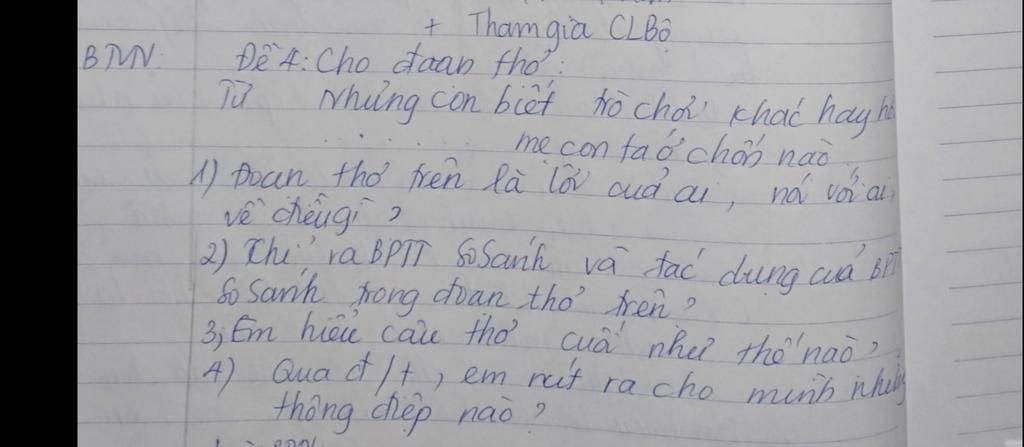 + Tham gia CLBộ
BTVN: Đề 4: Cho đoạn thơ:
Từ Nhưng con biết trò chơi khác hay
......... mẹ con ta ở chốn nào.
1) Đoạn thơ trên là lời của ai, nói với ai,
về điều gì?
2) Chỉ ra BPTT so sánh và tác dụng của
so sánh trong đoạn thơ trên?
3, Em hiểu câu thơ cuối như thế nào?
4) Qua đ/t, em rút ra cho mình những
thông điệp nào?